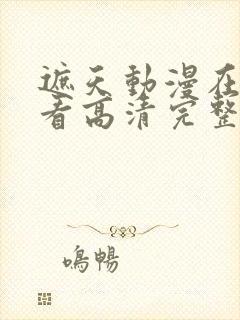 遮天動漫在
看高清完整
鳴暢